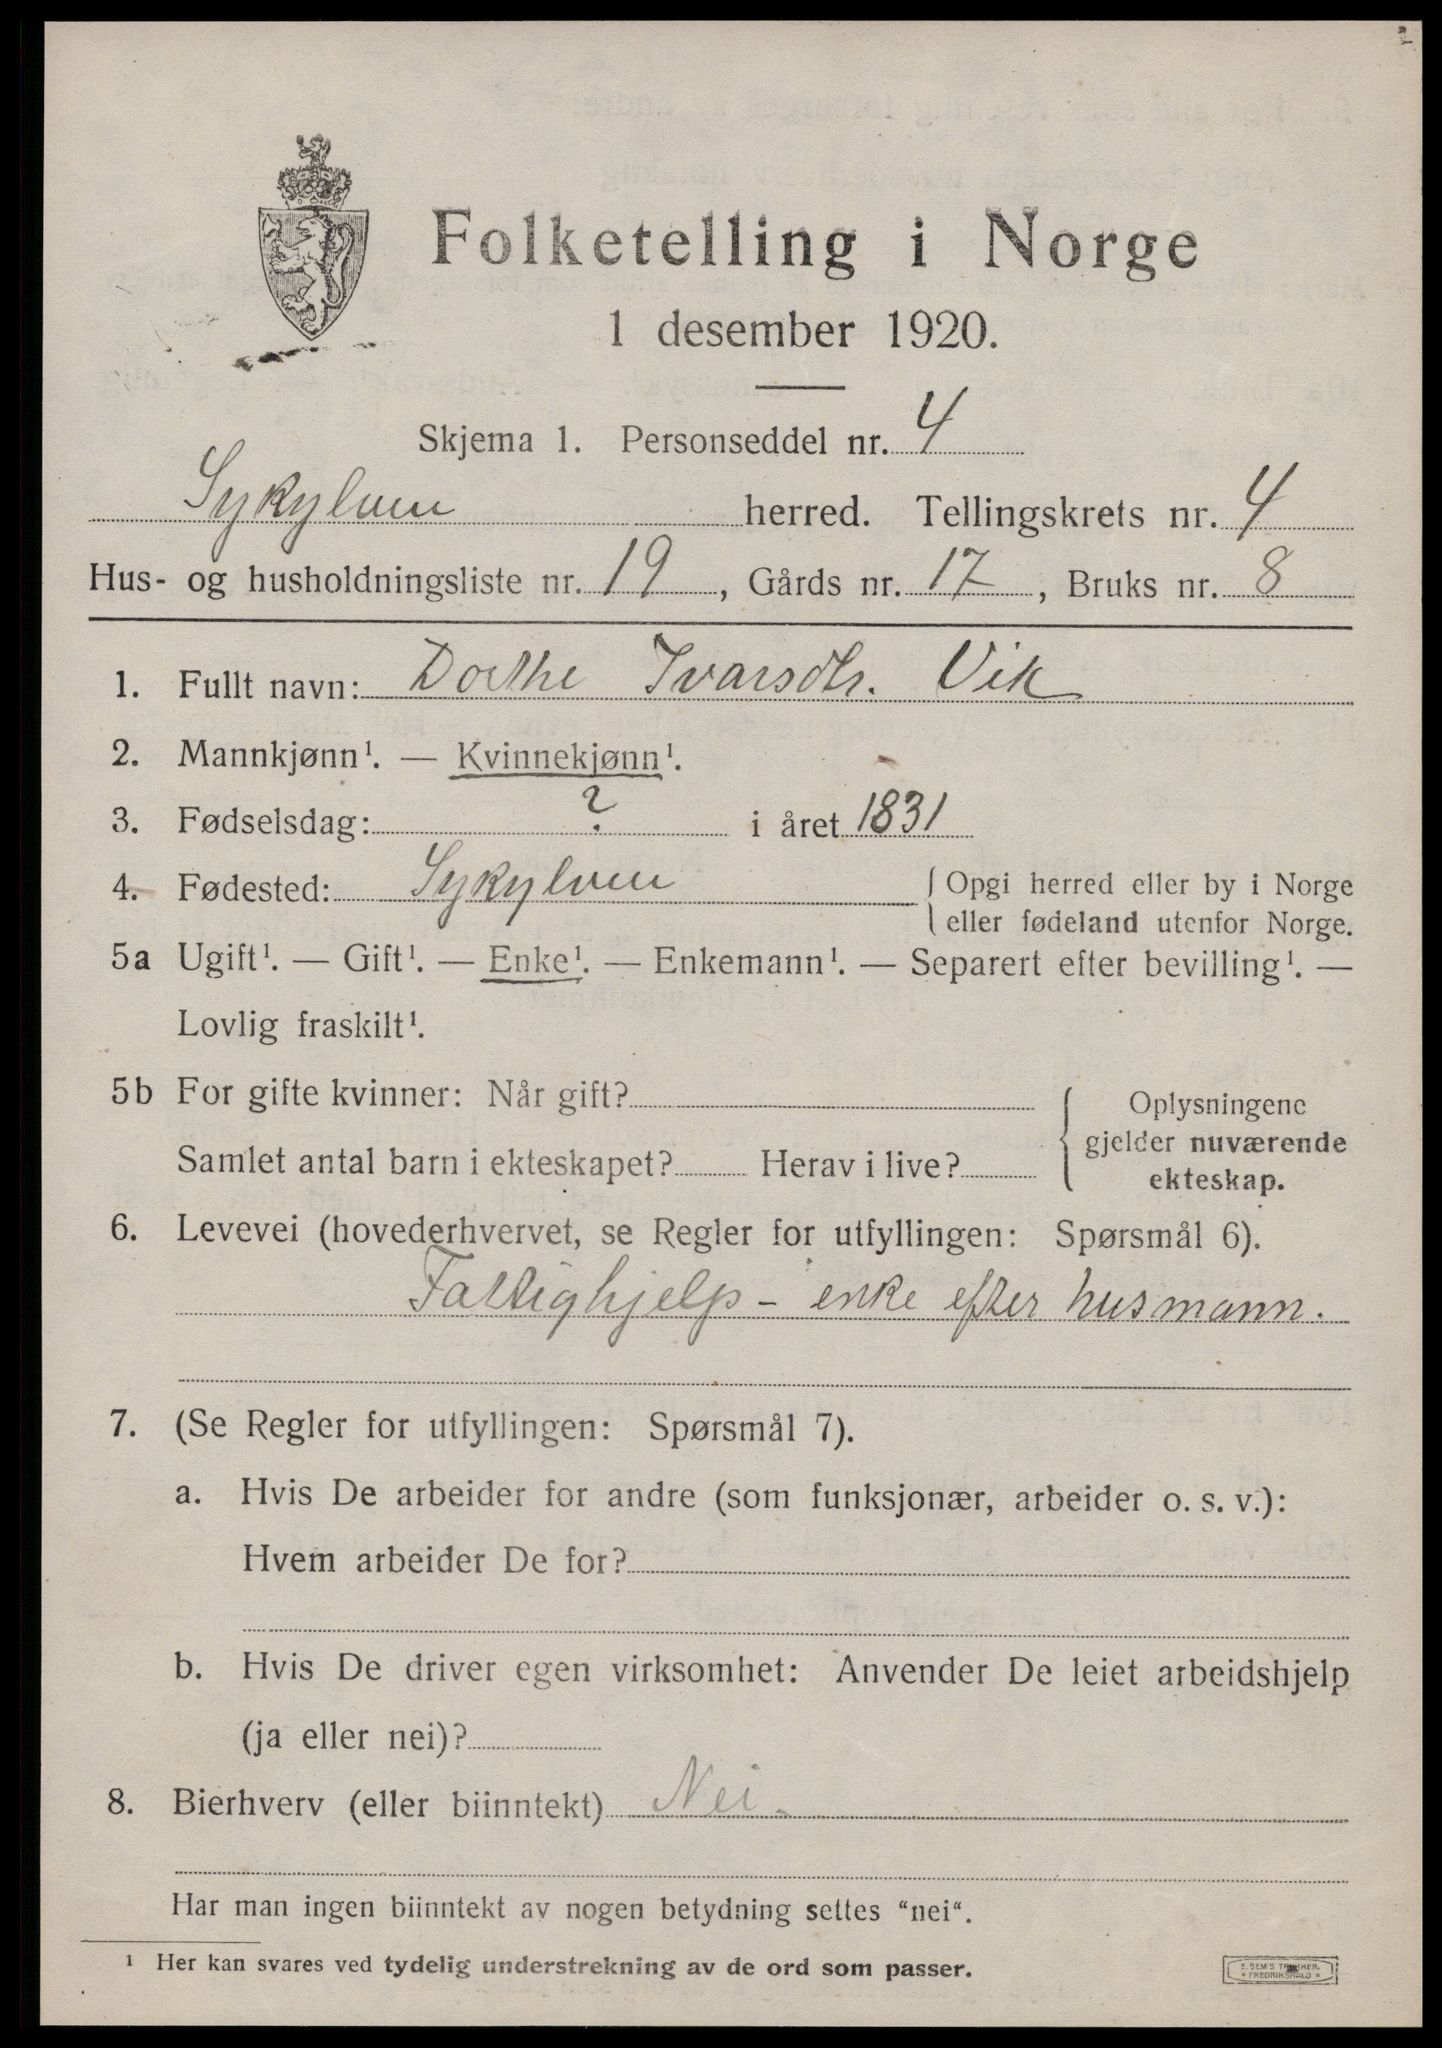 Folketelling i Norge
1 desember 1920.
Skjema 1. Personseddel nr. 4
Sykylven herred. Tellingskrets nr. 4
Hus- og husholdningsliste nr. 19, Gårds nr. 17, Bruks nr. 8
1. Fullt navn: Dorthe Ivarsdtr. Vik
2. Mannkjønn¹. — Kvinnekjønn¹.
3. Fødselsdag: ? i året 1831
4. Fødested: Sykylven { Opgi herred eller by i Norge
eller fødeland utenfor Norge.
5a Ugift¹. — Gift¹. — Enke¹. — Enkemann¹. — Separert efter bevilling¹. —
Lovlig fraskilt¹.
5b For gifte kvinner: Når gift?
Samlet antal barn i ekteskapet? Herav i live?
Oplysningene
gjelder nuværende
ekteskap.
6. Levevei (hovederhvervet, se Regler for utfyllingen: Spørsmål 6).
Fattighjelp – enke efter husmann.
7. (Se Regler for utfyllingen: Spørsmål 7).
a. Hvis De arbeider for andre (som funksjonær, arbeider o. s. v.):
Hvem arbeider De for?
b. Hvis De driver egen virksomhet: Anvender De leiet arbeidshjelp
(ja eller nei)?
8. Bierhverv (eller biinntekt) Nei.
Har man ingen biinntekt av nogen betydning settes “nei“.
¹ Her kan svares ved tydelig understrekning av de ord som passer.
E. SEM'S TRYKKERI.
FREDRIKSHALD